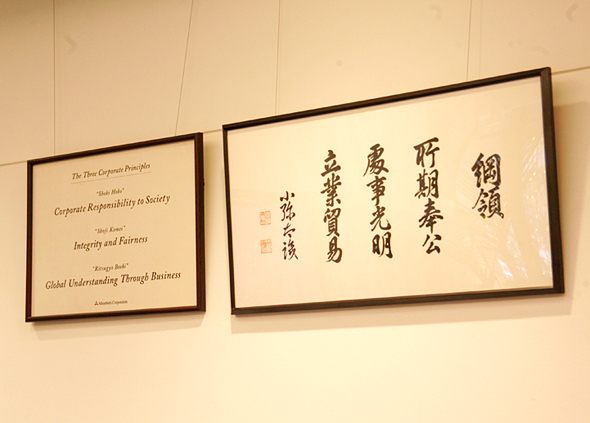 The Three Corporate Principles
"Shoki Hoko"
Corporate Responsibility to Society
"Shoji Komei"
Integrity and Fairness
"Ritsugyo Boeki"
Global Understanding Through Business
Mitsubishi Corporation
綱領
所期奉公
處事光明
立業貿易
小弥太誌